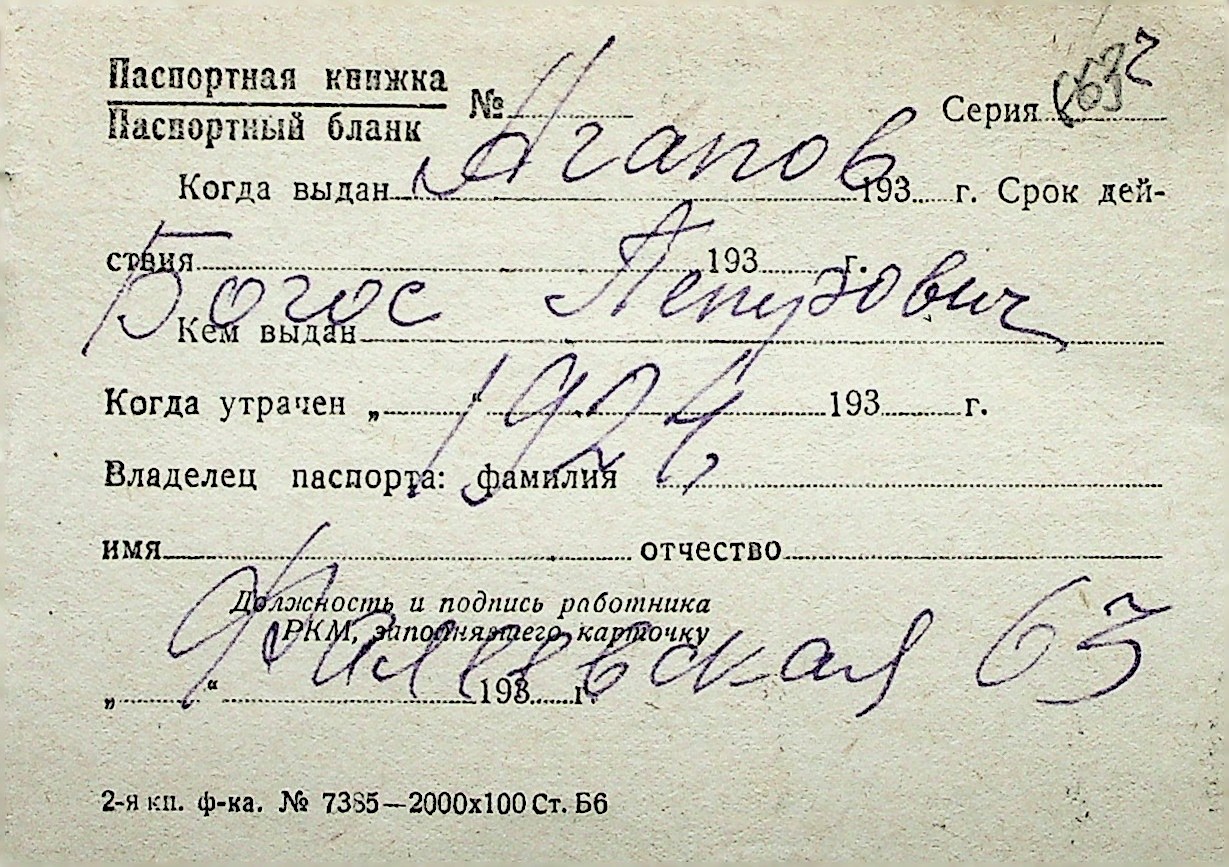 Паспортная книжка
Паспортный бланк
№ Серия 63
Агапов
Когда выдан 193 г. Срок дей-
ствия 193 г.
Богос Пепузович
Кем выдан
Когда утрачен „ “ 193 г.
1924
Владелец паспорта: фамилия
имя отчество
Должность и подпись работника
РКМ, заполнявшего карточку
Филевская 63
„ “ 193 г.
2-я кп. ф-ка. № 7385—2000х100 Ст. Б6